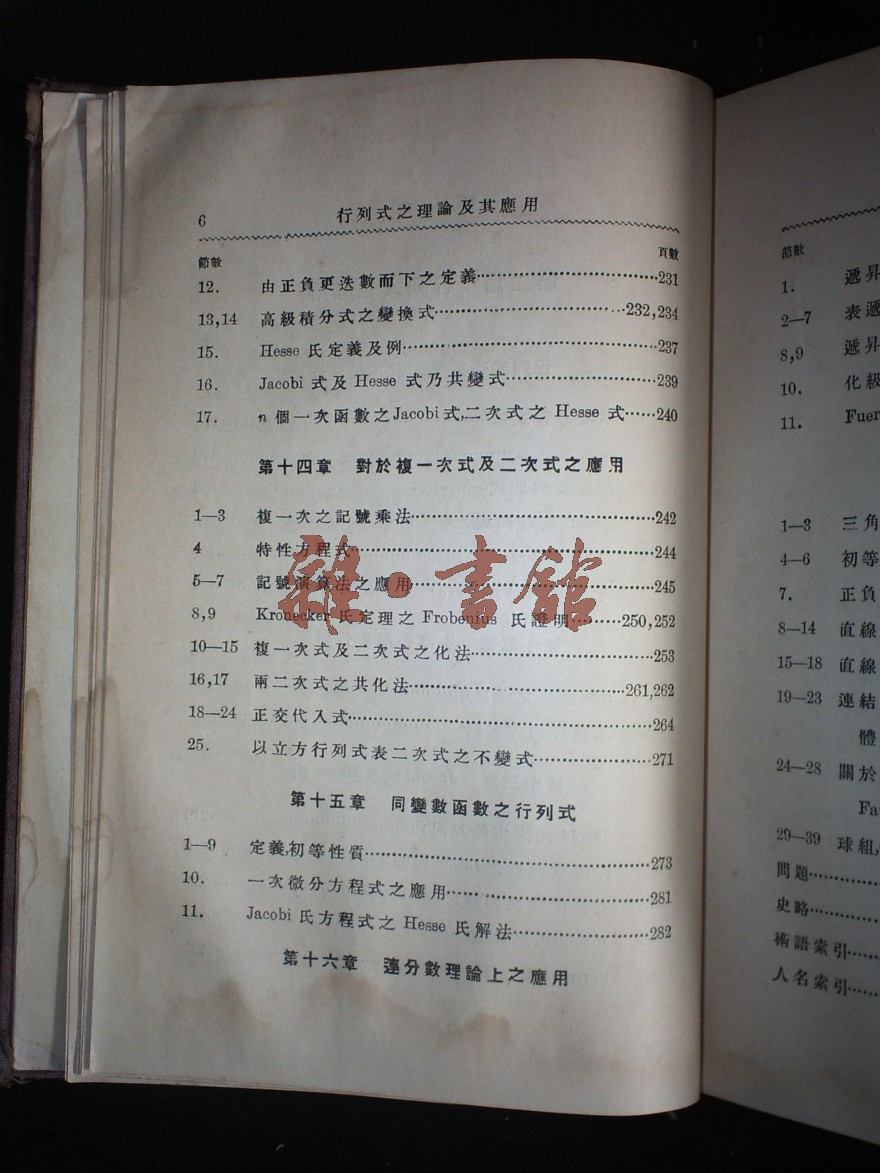 6 行列式之理論及其應用
節數 頁數
12. 由正負更迭數而下之定義……231
13,14 高級積分式之變換式……232,234
15. Hesse 氏定義及例……237
16. Jacobi 式及 Hesse 式乃共變式……239
17. n 個一次函數之Jacobi式,二次式之 Hesse 式……240
第十四章 對於複一次式及二次式之應用
1—3 複一次之記號乘法……242
4 特性方程式……244
5—7 記號演算法之應用……245
8,9 Kronecker 氏定理之 Frobenius 氏證明……250,252
10—15 複一次式及二次式之化法……253
16,17 兩二次式之共化法……261,262
18—24 正交代入式……264
25. 以立方行列式表二次式之不變式……271
第十五章 同變數函數之行列式
1—9 定義,初等性質……273
10. 一次微分方程式之應用……281
11. Jacobi 氏方程式之 Hesse 氏解法……282
第十六章 連分數理論上之應用
雜·書館
節數
1. 遞昇
2—7 表遞
8,9 遞昇
10. 化級
11. Fuer
1—3 三角
4—6 初等
7. 正負
8—14 直線
15—18 直線
19—23 連結
體
24—28 關於
Fa
29—39 球組,
問題……
史略……
術語索引……
人名索引……